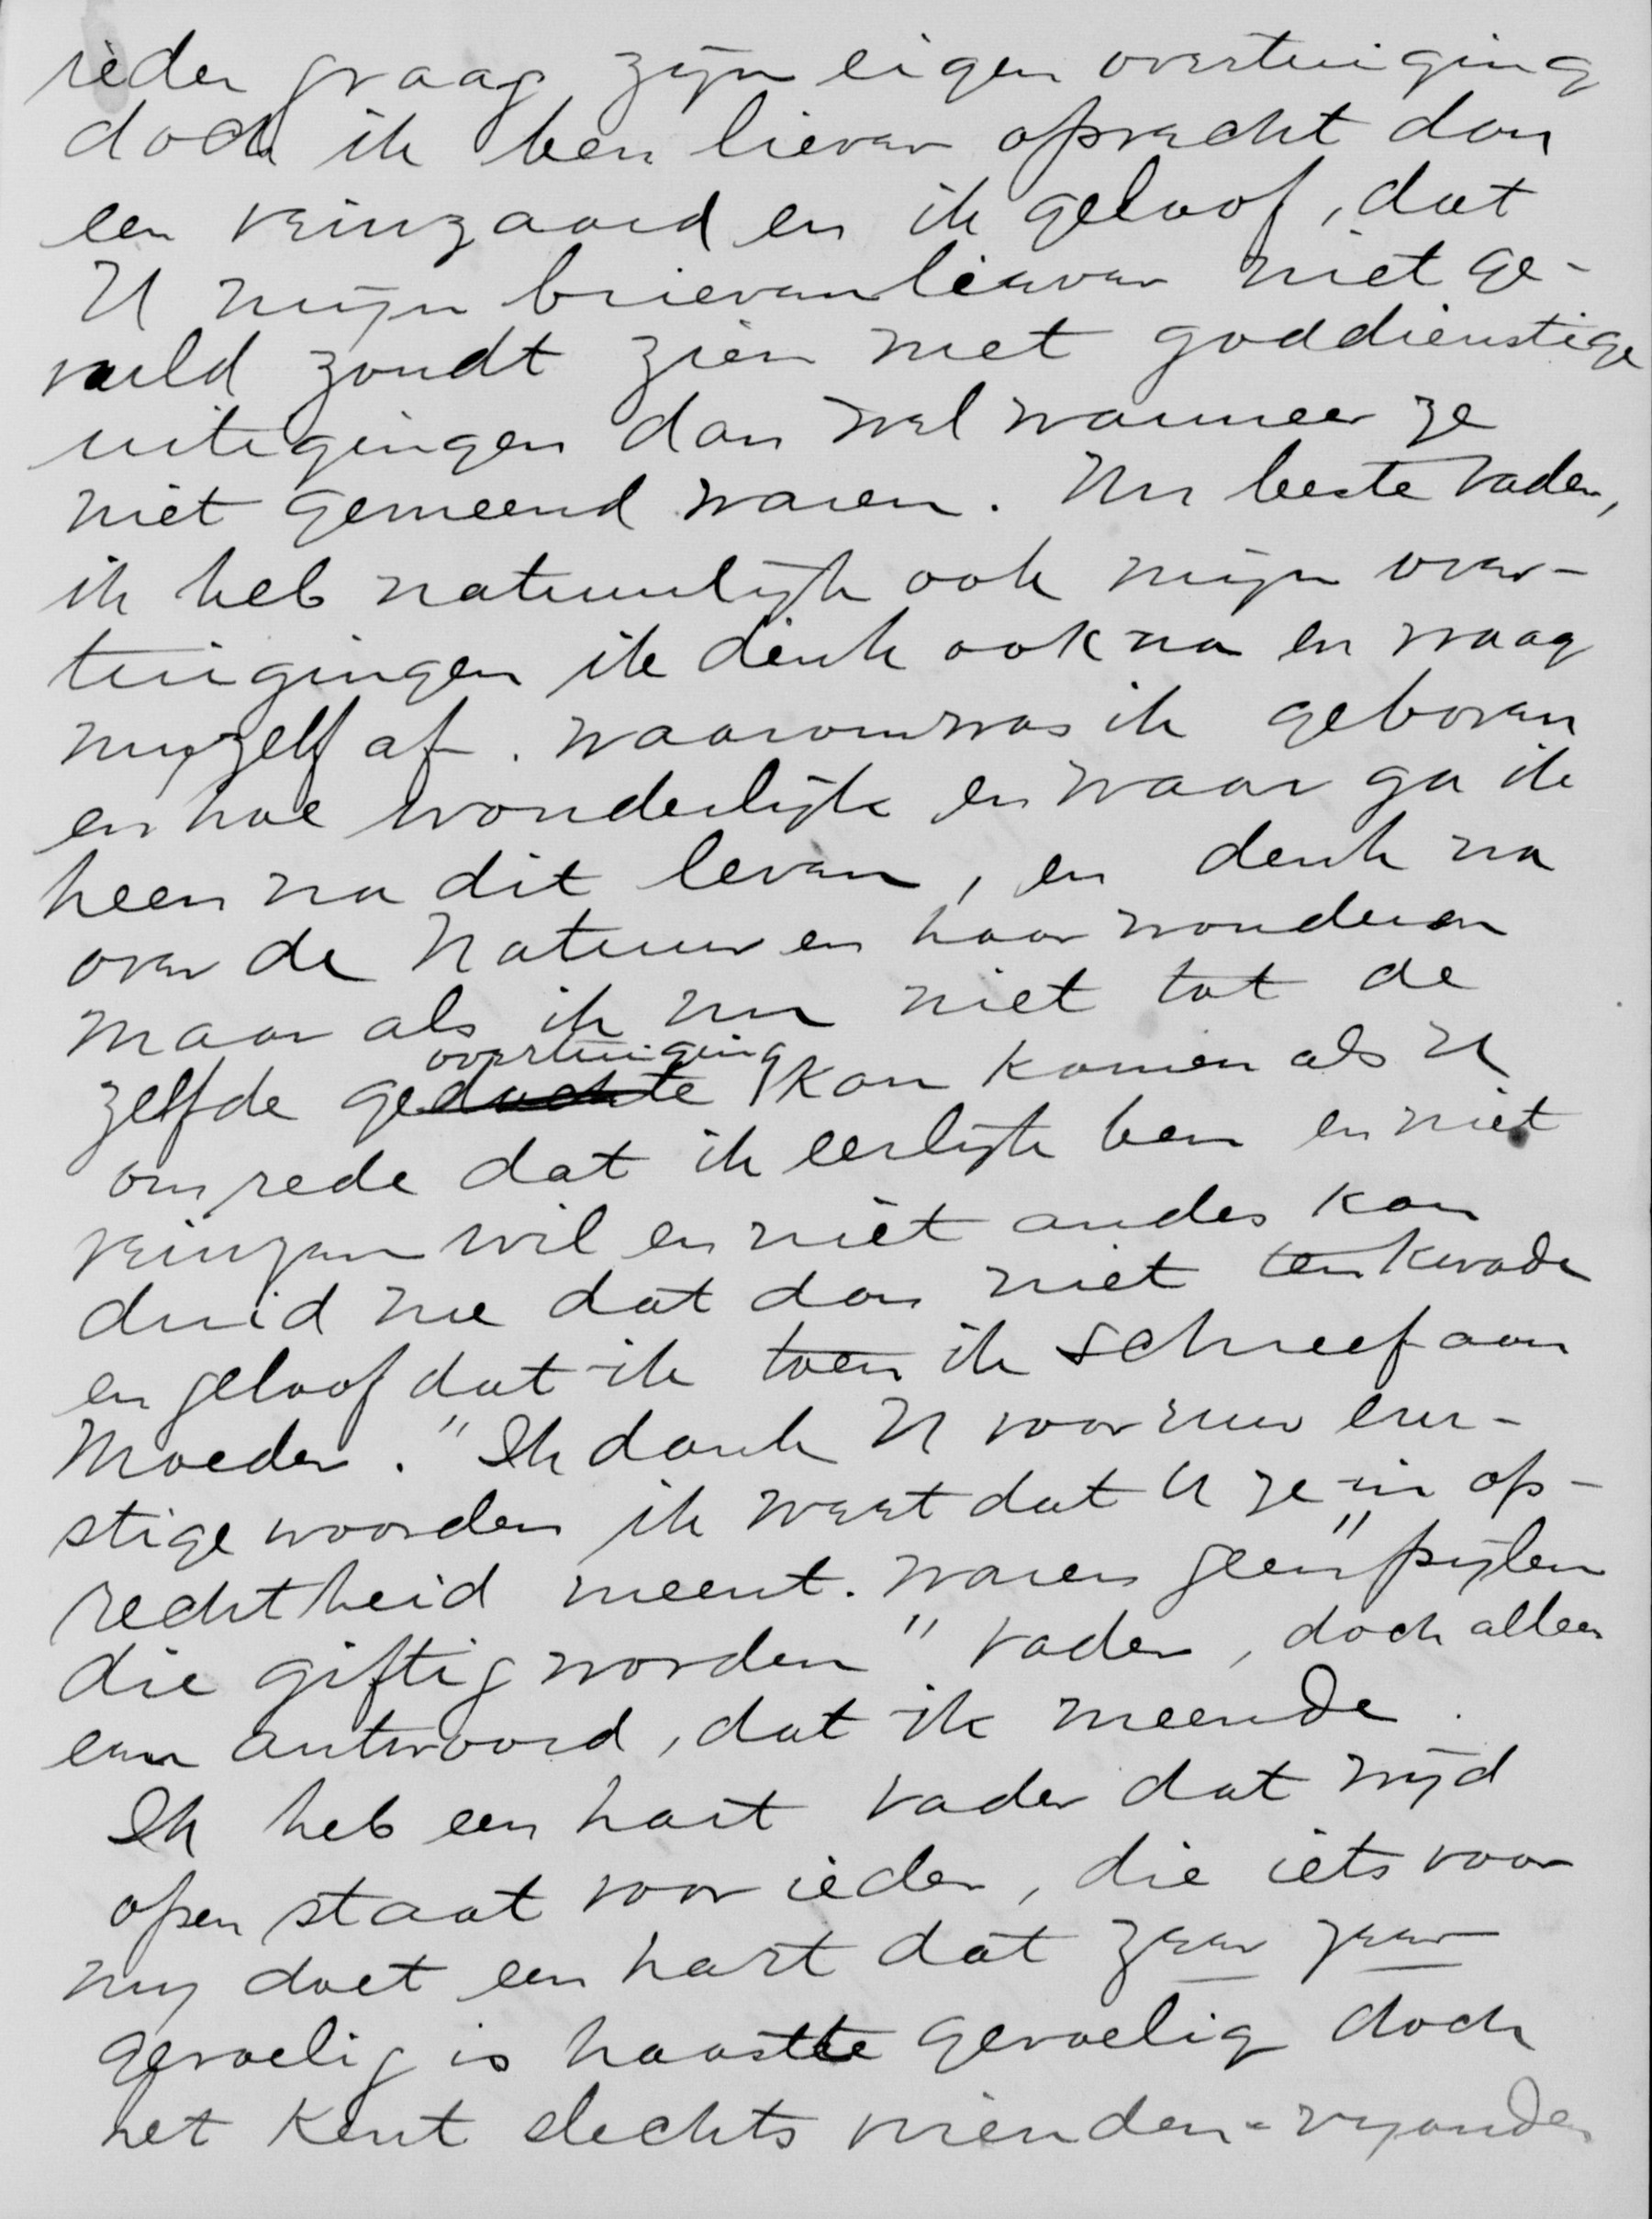 ieder graag zijn eigen overtuiging
doch ik ben liever oprecht dan
een veinzaard en ik geloof, dat
U mijn brieven liever niet ge-
vuld zoudt zien met goddienstige
uitigingen dan wel wanneer ze
niet gemeend waren. Nu beste vader,
ik heb natuurlijk ook mijn over-
tuigingen ik denk ook na en vraag
mijzelf af. waarom was ik geboren
en hoe wonderlijk en waar ga ik
heen na dit leven, en denk na
over de Natuur en haar wonderen
maar als ik nu niet tot de
overtuiging
zelfde gedachte kan komen als U
om rede dat ik eerlijk ben en niet
veinzen wil en niet anders kan
duid me dat dan niet ten kwade
en geloof dat ik toen ik schreef aan
Moeder. "Ik dank U voor uw ern-
stige woorden ik weet dat U ze in op-
rechtheid meent." waren geen "pijlen
die giftig worden" vader, doch alleen
een antwoord, dat ik meende.
Ik heb een hart vader dat wijd
open staat voor ieder, die iets voor
mij doet een hart dat zeer zeer
gevoelig is haast te gevoelig doch
het kent slechts vrienden - vyanden